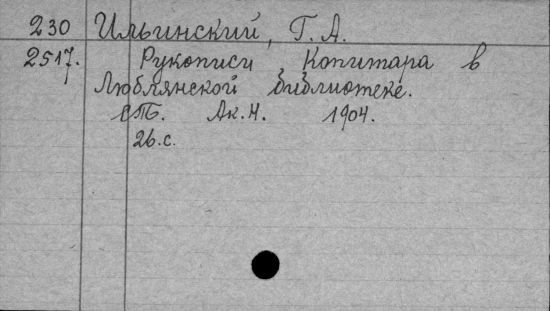 230 Ильинский, Г. А.
2517. Рукописи Копитара в
Люблянской библиотеке.
СПб. Ак. Н. 1904.
26.с.